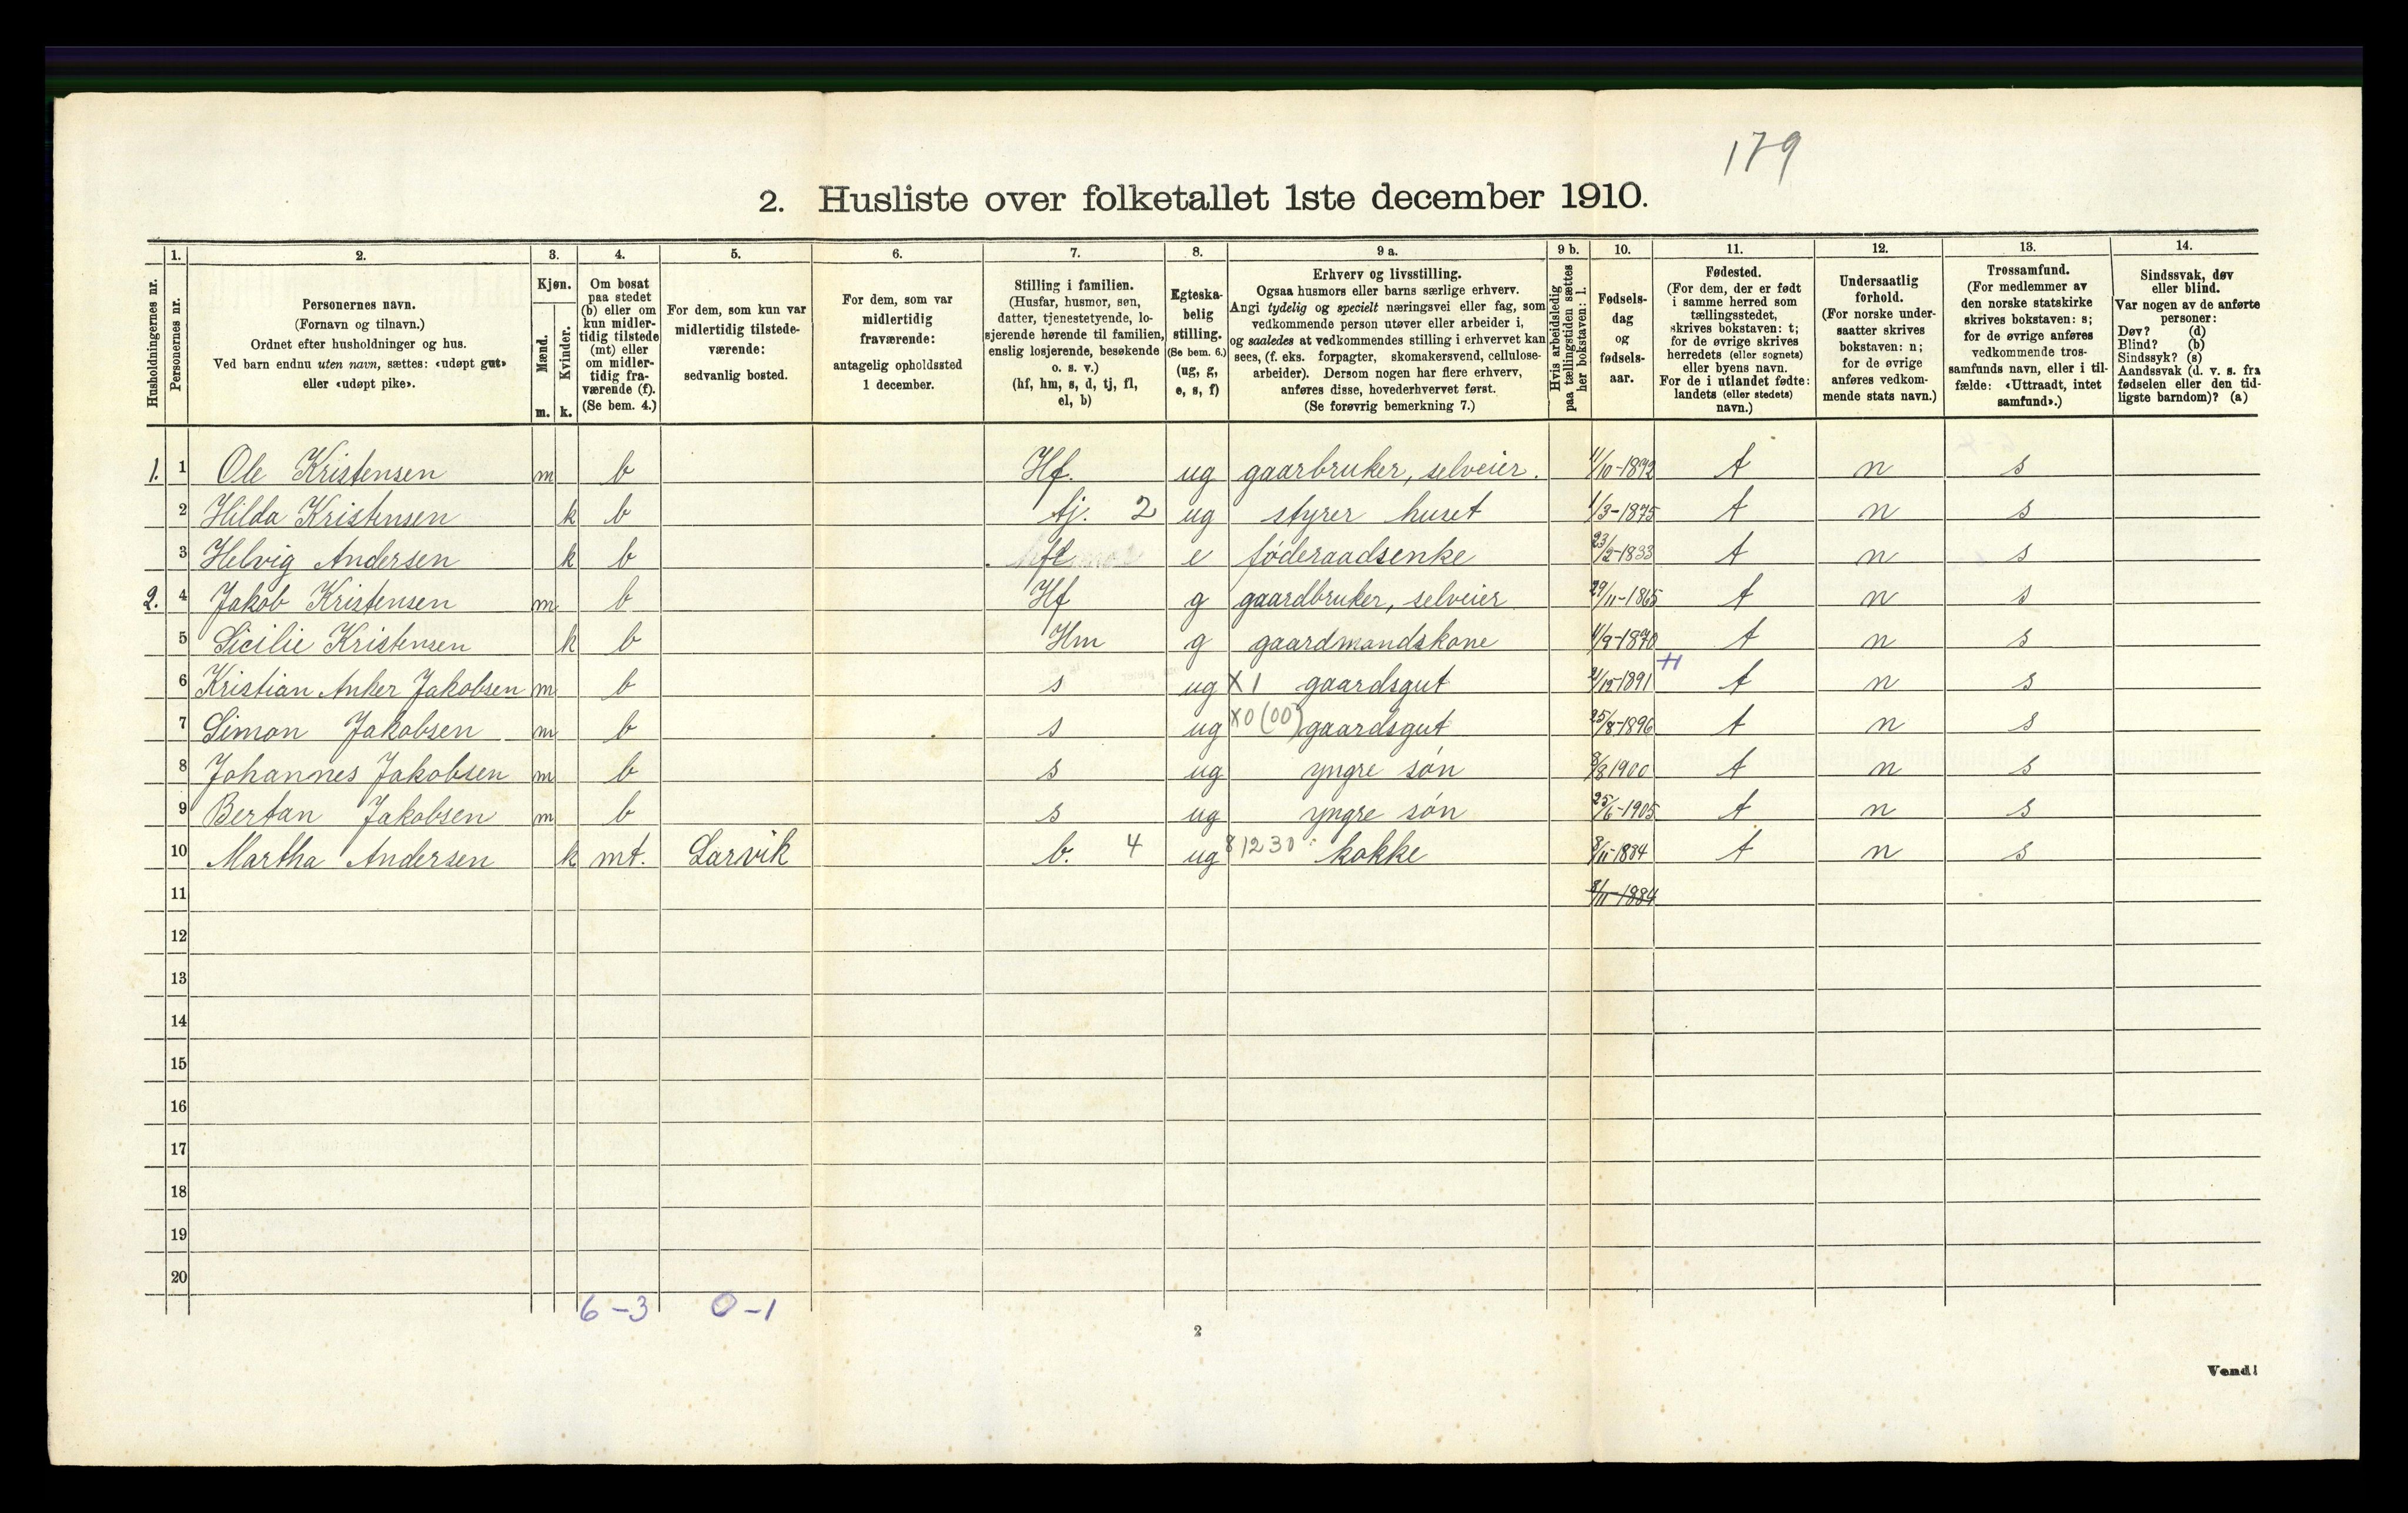 179
2. Husliste over folketallet 1ste december 1910.
Husholdningernes nr.
1.
Personernes nr.
2.
Personernes navn.
(Fornavn og tilnavn.)
Ordnet efter husholdninger og hus.
Ved barn endnu uten navn, sættes: «udøpt gut»
eller «udøpt pike».
3.
Kjøn.
Mænd.
Kvinder.
m. k.
4.
Om bosat
paa stedet
(b) eller om
kun midler-
tidig tilstede
(mt) eller
om midler-
tidig fra-
værende (f).
(Se bem. 4.)
5.
For dem, som kun var
midlertidig tilstede-
værende:
sedvanlig bosted.
6.
For dem, som var
midlertidig
fraværende:
antagelig opholdssted
1 december.
7.
Stilling i familien.
(Husfar, husmor, søn,
datter, tjenestetyende, lo-
sjerende hørende til familien,
enslig losjerende, besøkende
o. s. v.)
(hf, hm, s, d, tj, fl,
el, b)
8.
Egteska-
belig
stilling.
(Se bem. 6.)
(ug, g,
e, s, f)
9 a.
Erhverv og livsstilling.
Ogsaa husmors eller barns særlige erhverv.
Angi tydelig og specielt næringsvei eller fag, som
vedkommende person utøver eller arbeider i,
og saaledes at vedkommendes stilling i erhvervet kan
sees, (f. eks. forpagter, skomakersvend, cellulose-
arbeider). Dersom nogen har flere erhverv,
anføres disse, hovederhvervet først.
(Se forøvrig bemerkning 7.)
9 b.
Hvis arbeidsledig
paa tællingstiden sættes
her bokstaven: l.
10.
Fødsels-
dag
og
fødsels-
aar.
11.
Fødested.
(For dem, der er født
i samme herred som
tællingsstedet,
skrives bokstaven: t;
for de øvrige skrives
herredets (eller sognets)
eller byens navn.
For de i utlandet fødte:
landets (eller stedets)
navn.)
12.
Undersaatlig
forhold.
(For norske under-
saatter skrives
bokstaven: n;
for de øvrige
anføres vedkom-
mende stats navn.)
13.
Trossamfund.
(For medlemmer av
den norske statskirke
skrives bokstaven: s;
for de øvrige anføres
vedkommende tros-
samfunds navn, eller i til-
fælde: «Uttraadt, intet
samfund».)
14.
Sindssvak, døv
eller blind.
Var nogen av de anførte
personer:
Døv? (d)
Blind? (b)
Sindssyk? (s)
Aandssvak (d. v. s. fra
fødselen eller den tid-
ligste barndom)? (a)
1. 1 Ole Kristensen m b Hf. ug gaarbruker, selveier. 11/10-1872 t n s
2 Hilda Kristensen k b tj. 2 ug styrer huset 1/3-1875 t n s
3 Helvig Andersen k b fl e føderaadsenke 23/2-1833 t n s
2. 4 Jakob Kristensen m b Hf g gaardbruker, selveier 29/11-1865 t n s
5 Sicilie Kristensen k b Hm g gaardmandskone /9-1870 t n s
6 Kristian Anker Jakobsen m b s ug X 1 gaardsgut /12-1891 t n s
7 Simon Jakobsen m b s ug X0 (00) gaardsgut 25/8-1896 t n s
8 Johannes Jakobsen m b s ug yngre søn 8/8 1900 t n s
9 Bertan Jakobsen m b s ug yngre søn 25/6-1905 t n s
10 Martha Andersen k mt. Larvik b. 4 ug 81230 kokke 8/11-1884 t n s
11 8/11-1884
12
13
14
15
16
17
18
19
20
6-3 0-1
2
Vend!